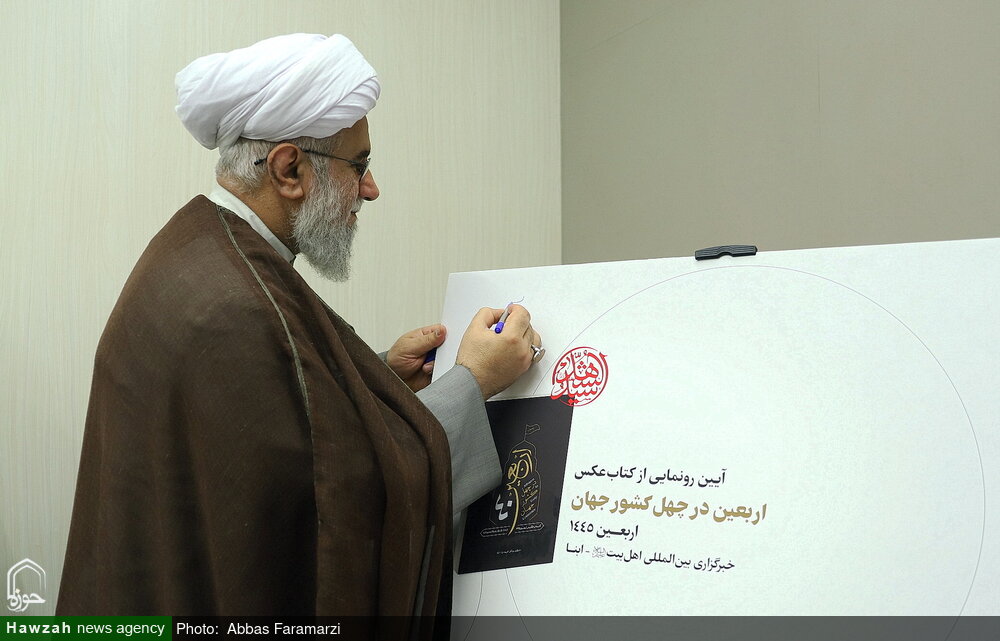 آیین رونمایی از کتاب عکس
اربعین در چهل کشور جهان
اربعین ۱۴۴۵
خبرگزاری بین‌المللی اهل‌بیت - ابنا
اربعین
حوزه
Hawzah news agency Photo: Abbas Faramarzi